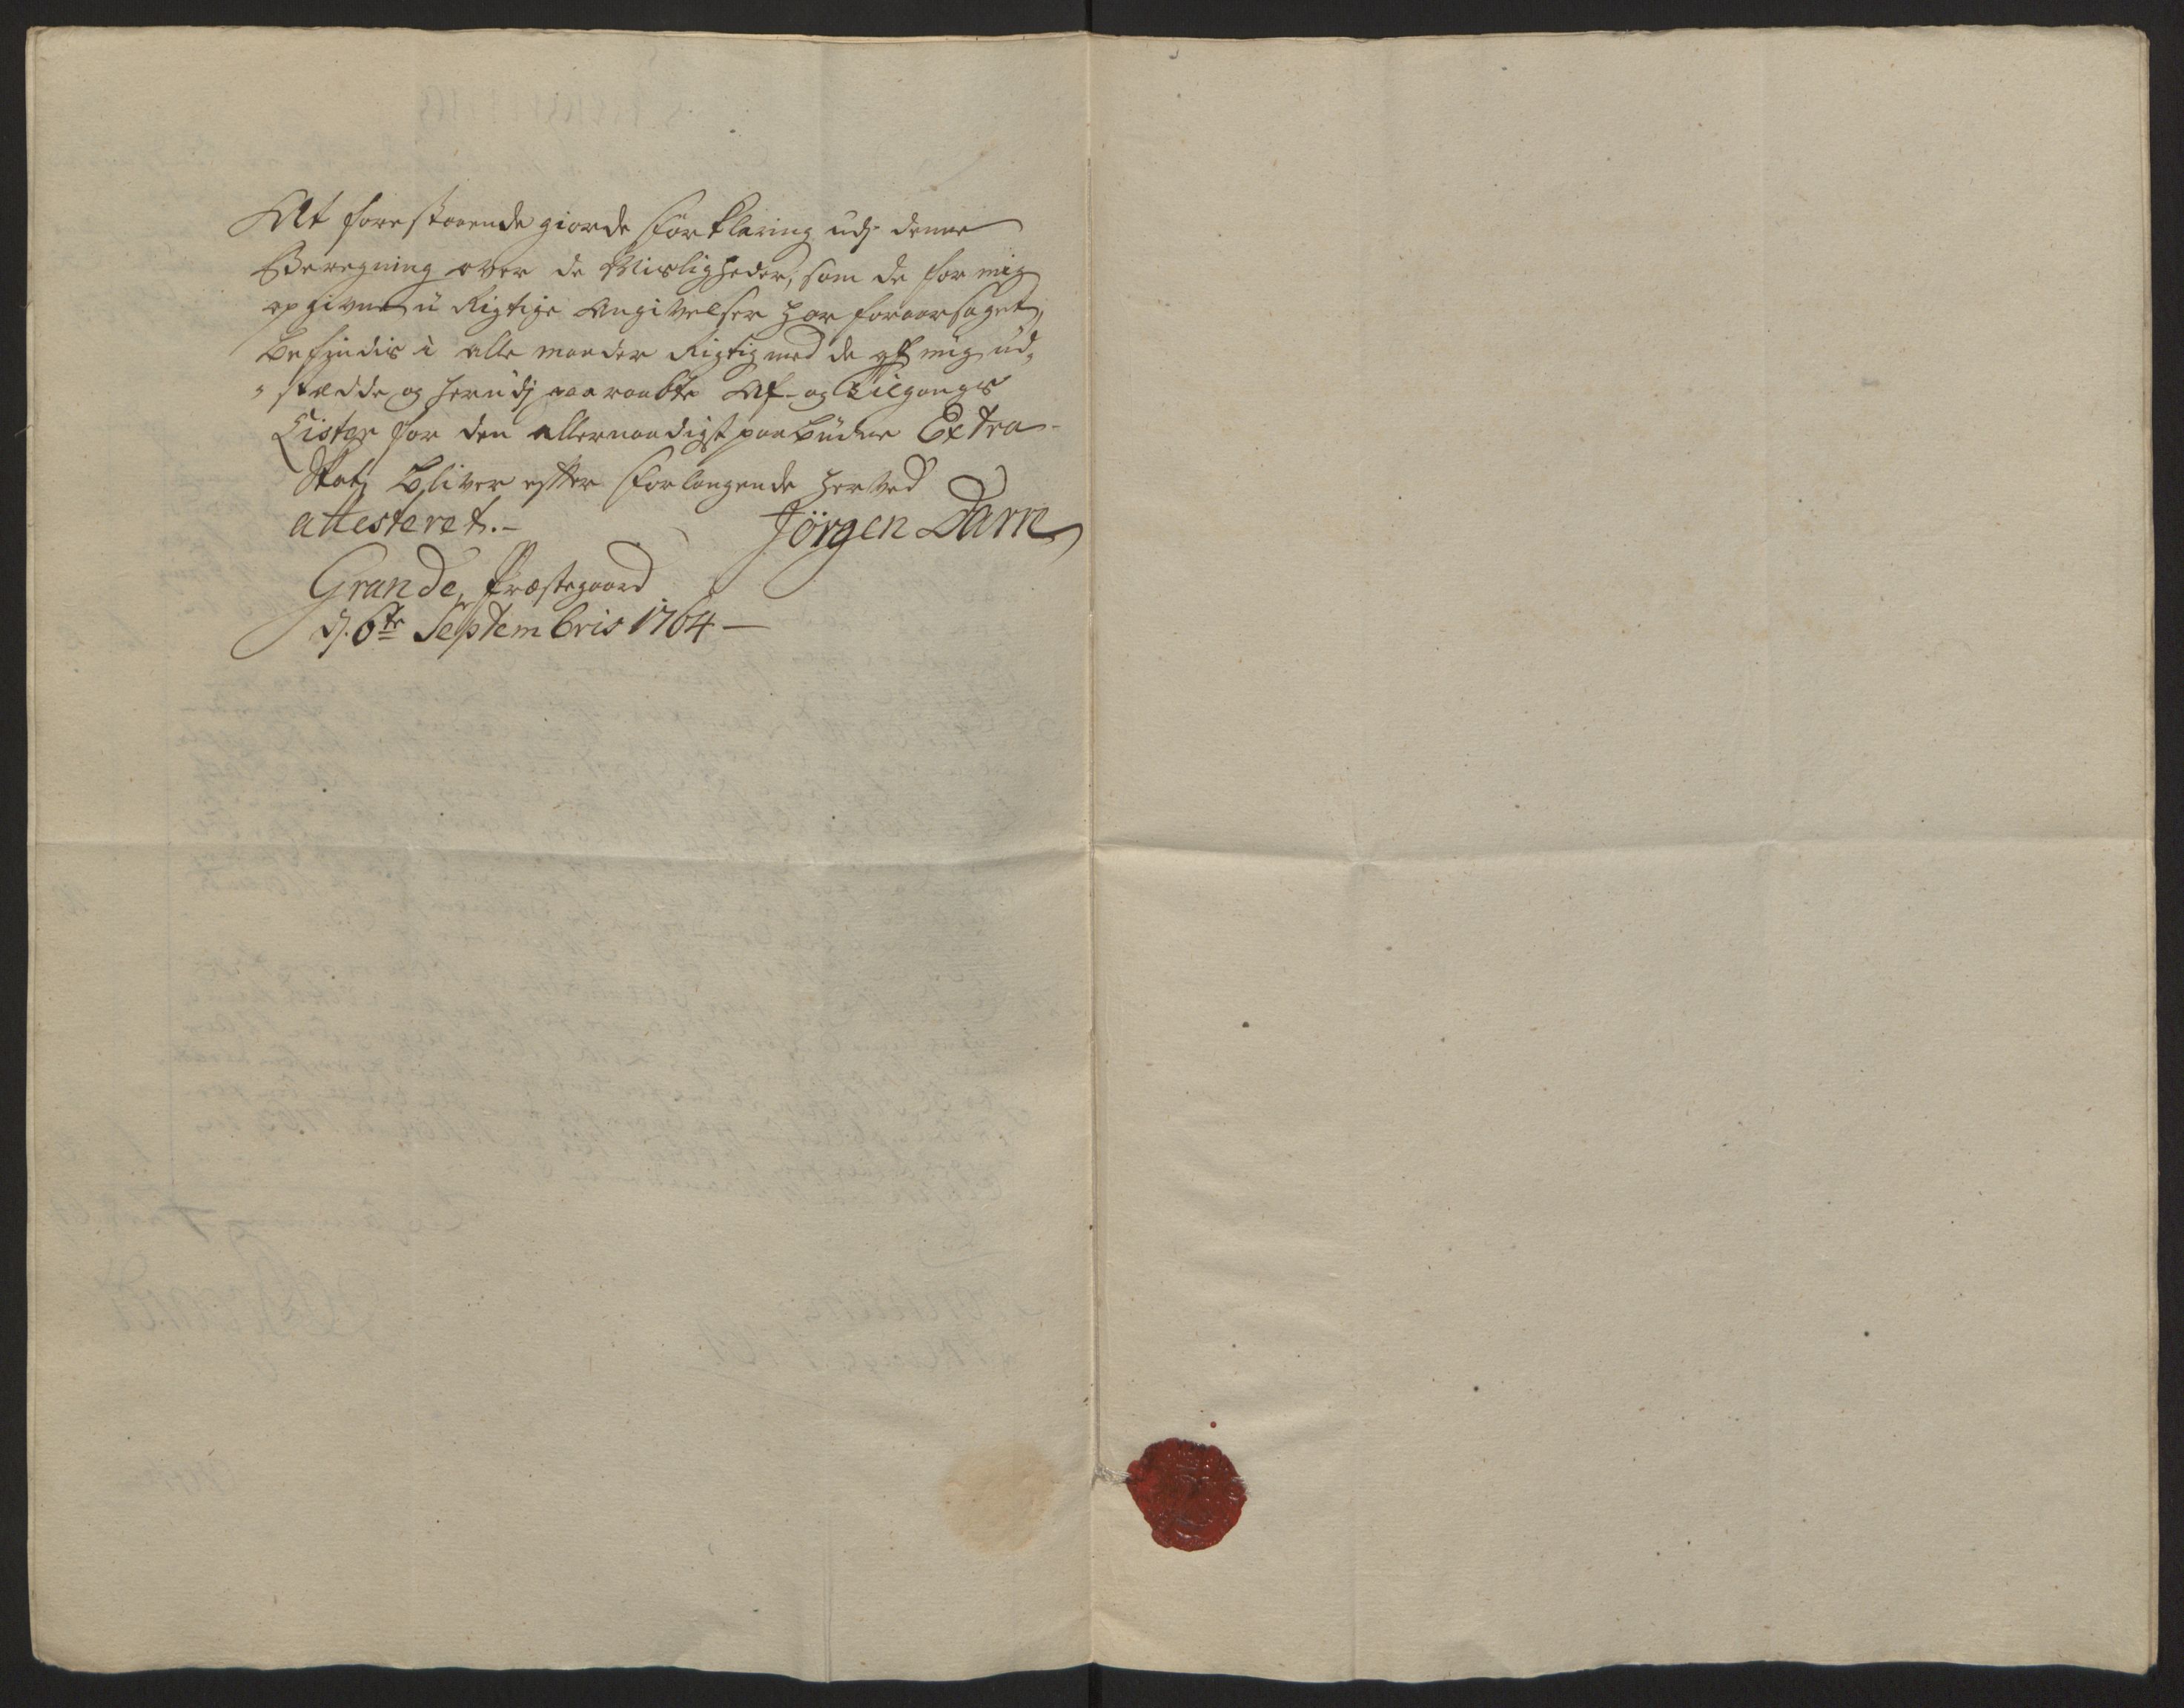 At forestaaende giorde Forklaring udj denne
Beregning over de Misligheder, som de for mig
opgivne u Rigtige Angivelser har foraarsaget,
befindis i alle maader Rigtig med de af mig ud„
„stædde og herudj paaraabte Af- og Tilgangs
Lister for den allernaadigst paabudne Extra-
Skat, bliver efter forlangende herved
attesteret.-
Jörgen Darre
Grande, Præstegaard
d. 6te Septembris 1764 —